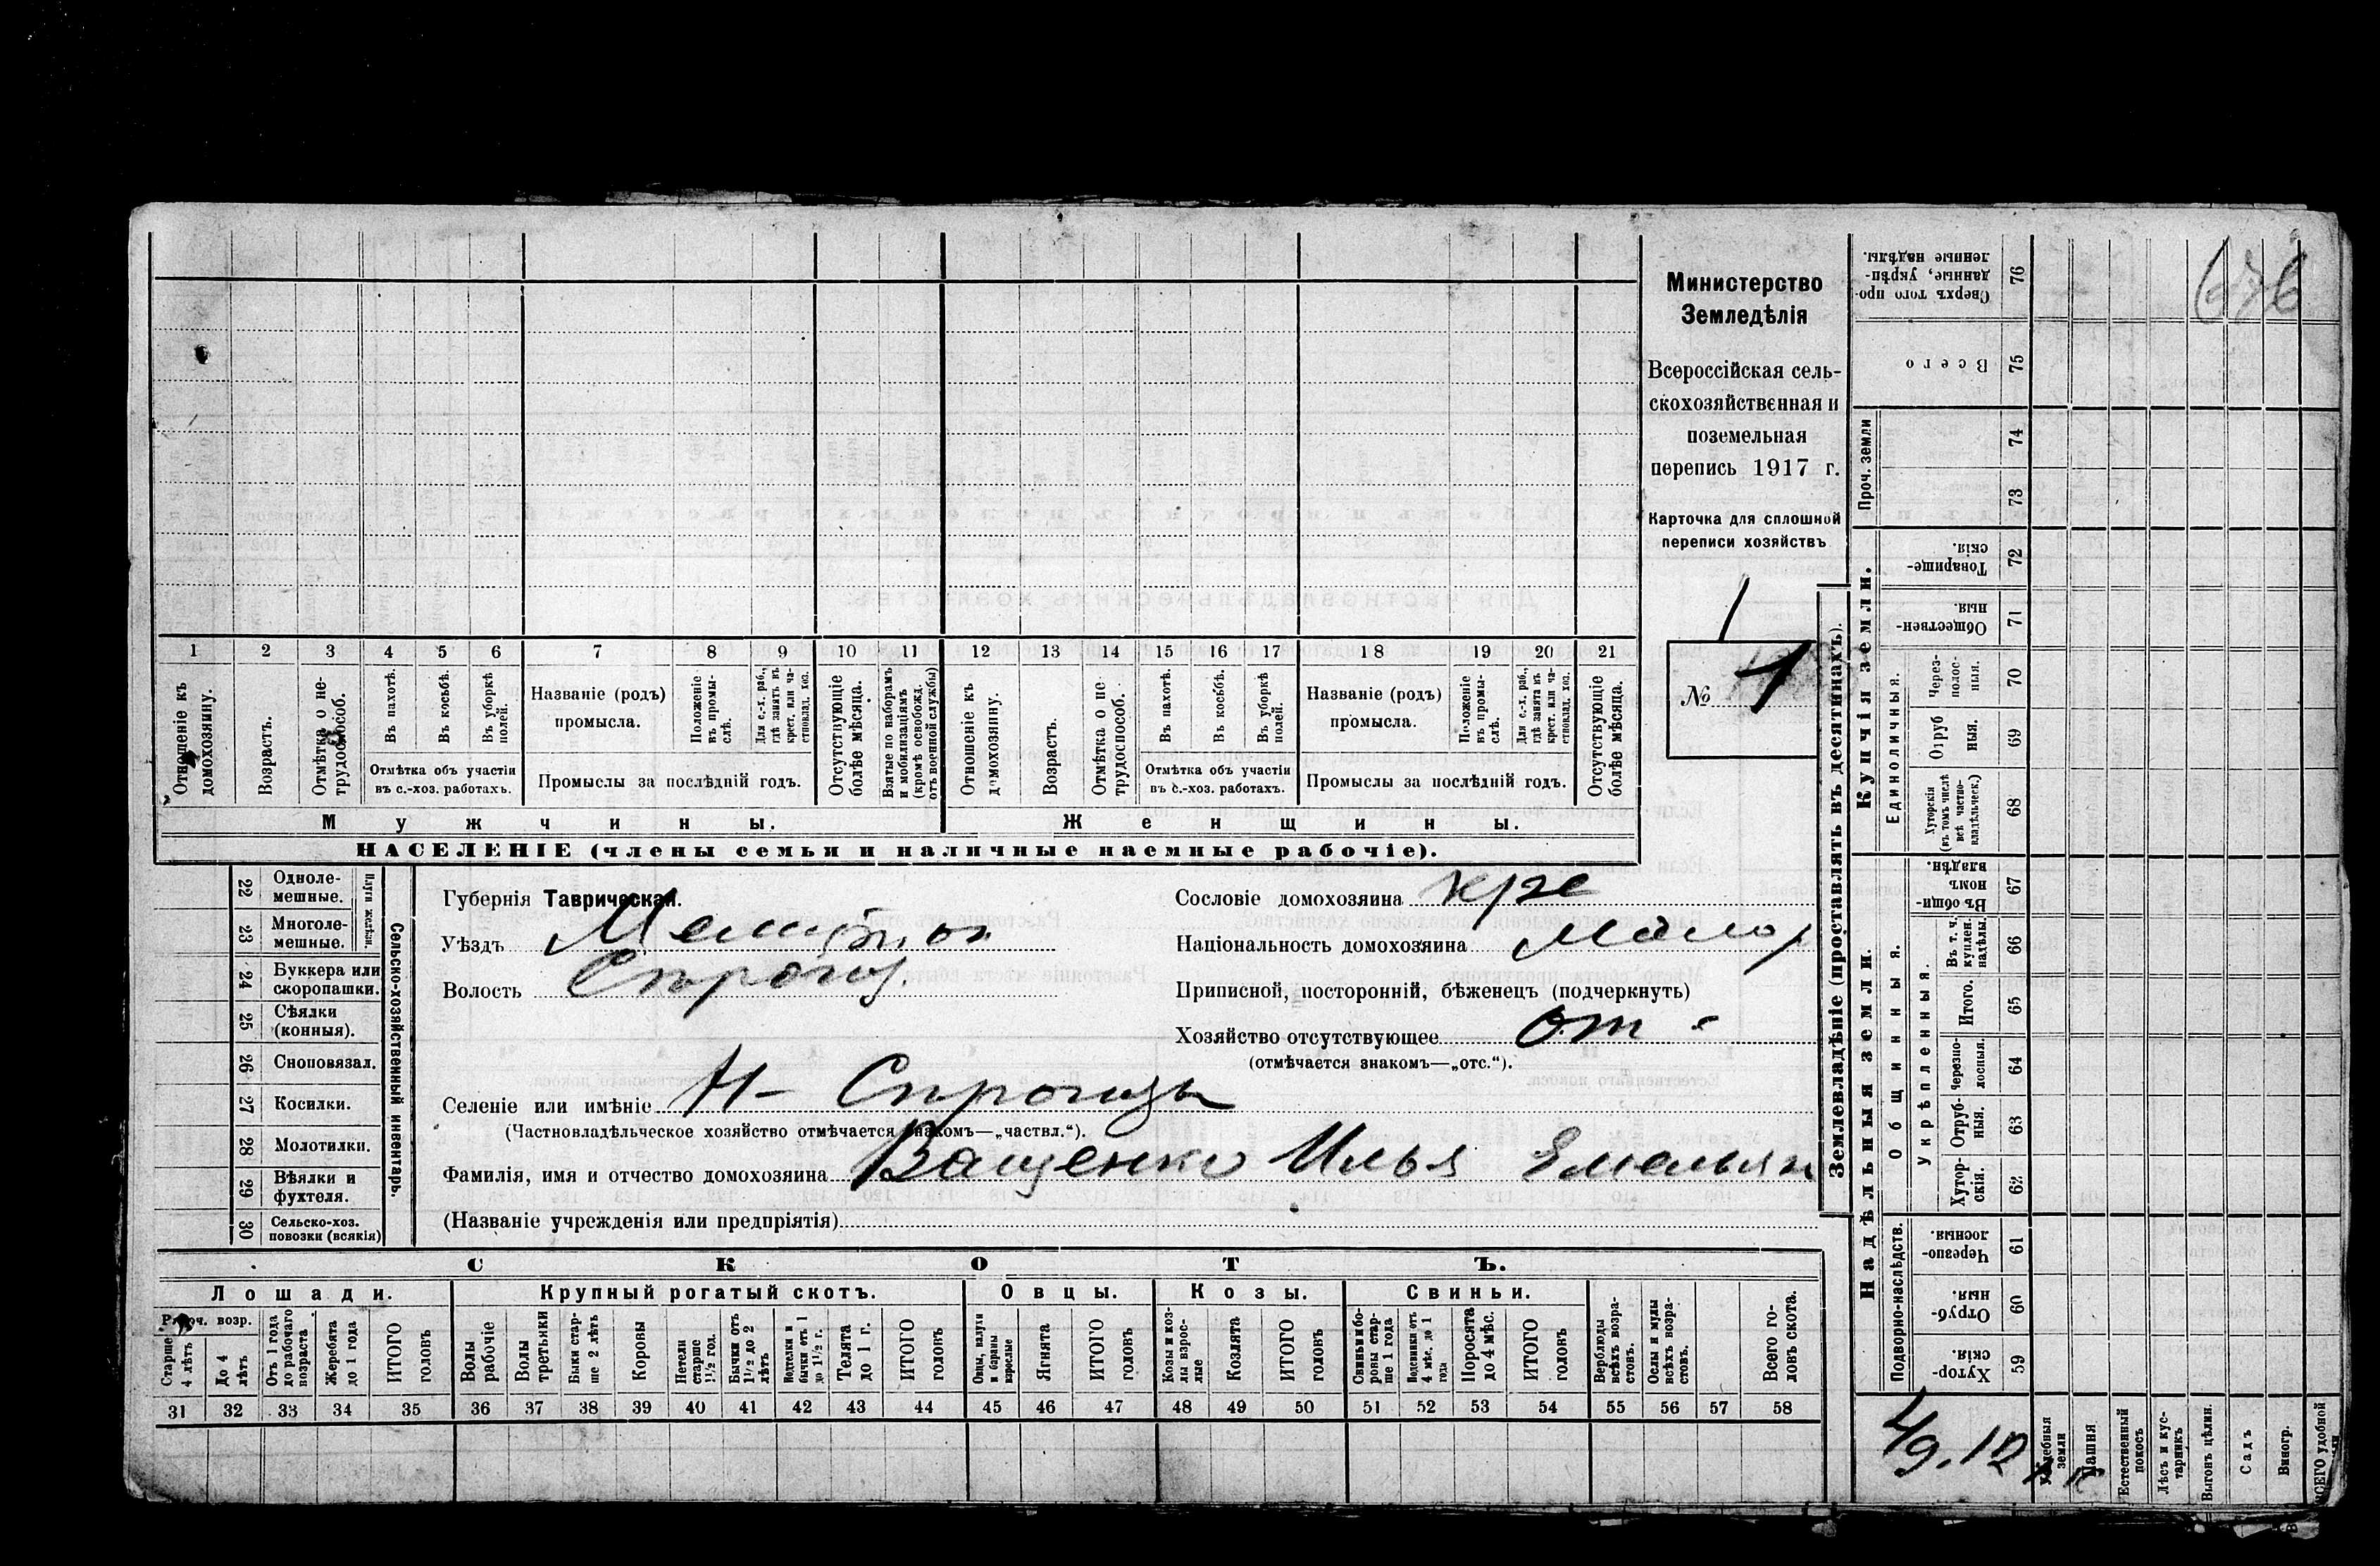 Министерство
Земледѣлія
Всероссійская сель-
скохозяйственная и
поземельная
перепись 1917 г.
Карточка для сплошной
переписи хозяйствъ
1
№ 1
1 2 3 4 5 6 7 8 9 10 11 12 13 14 15 16 17 18 19 20 21
Отношеніе къ домохозяину.
Возрастъ.
Отмѣтка о не-
трудоспособ.
Въ пахотѣ.
Въ косьбѣ.
Въ уборкѣ полей.
Отмѣтка объ участіи
въ с.-хоз. работахъ.
Названіе (родъ)
промысла.
Положеніе въ промы-
слѣ.
Для с.-х. раб., гдѣ занятъ въ крест. или ча-
стновлад. хоз.
Промыслы за послѣдній годъ.
Отсутствующіе болѣе мѣсяца.
Взятые по наборамъ и мобилизаціямъ (кромѣ освобожд. отъ военной службы)
Отношеніе къ домохозяину.
Возрастъ.
Отмѣтка о не
трудоспособ.
Въ пахотѣ.
Въ косьбѣ.
Въ уборкѣ полей.
Отмѣтка объ участіи
въ с.-хоз. работахъ.
Названіе (родъ)
промысла.
Положеніе въ промы-
слѣ.
Для с.-х. раб., гдѣ занята въ крест. или ча-
стновлад. хоз.
Промыслы за послѣдній годъ.
Отсутствующіе болѣе мѣсяца.
Мужчины.
Женщины.
НАСЕЛЕНІЕ (члены семьи и наличные наемные рабочіе).
Сельско-хозяйственный инвентарь.
Плуги желѣзн.
22 Одноле-
мешные.
23 Многоле-
мешные.
24 Буккера или
скоропашки.
25 Сѣялки
(конныя).
26 Сноповязал.
27 Косилки.
28 Молотилки.
29 Вѣялки и
фухтеля.
30 Сельско-хоз.
повозки (всякія)
Губернія Таврическая.
Уѣздъ
Волость
Сословіе домохозяина кре
Національность домохозяина Малор
Приписной, посторонній, бѣженецъ (подчеркнуть)
Хозяйство отсутствующее
(отмѣчается знакомъ—„отс.“).
Селеніе или имѣніе
(Частновладѣльческое хозяйство отмѣчается знакомъ—„частвл.“).
Фамилія, имя и отчество домохозяина Ващенко Илья Емельян
(Названіе учрежденія или предпріятія)
СКОТЪ.
Лошади.
Крупный рогатый скотъ.
Овцы.
Козы.
Свиньи.
Рабоч. возр.
Старше 4 лѣтъ
До 4 лѣтъ
Отъ 1 года до рабочаго возраста
Жеребята до 1 года
ИТОГО головъ
Волы рабочіе
Волы третьяки
Быки стар-
ше 2 лѣтъ
Коровы
Нетели старше 1½ год.
Бычки отъ 1½ до 2 лѣтъ
Подтелки и бычки отъ 1 до 1½ г.
Телята до 1 г.
ИТОГО головъ
Овцы, валухи и бараны взрослые
Ягнята
ИТОГО головъ
Козы и коз-
лы взрос-
лые
Козлята
ИТОГО головъ
Свиньи и бо-
ровы стар-
ше 1 года
Подсвинки отъ 4 мѣс. до 1 года
Поросята до 4 мѣс.
ИТОГО головъ
Верблюды всѣхъ возра-
стовъ.
Ослы и мулы всѣхъ возра-
стовъ.
Всего го-
ловъ скота.
31 32 33 34 35 36 37 38 39 40 41 42 43 44 45 46 47 48 49 50 51 52 53 54 55 56 57 58
Землевладѣніе (проставлять въ десятинахъ).
Купчія земли.
Надѣльныя земли.
Сверхъ того про-
данные, укрѣп-
ленные надѣлы. 76
Всего 75
Проч. земли
74
73
Товарище-
скія. 72
Обществен-
ныя. 71
Единоличныя.
Через-
полос-
ныя. 70
Отруб
ныя. 69
Хуторскія (въ томъ числѣ всѣ частно-
владѣльческ.) 68
Въ общи-
номъ
владѣн. 67
Общинныя.
Укрѣпленныя.
Въ т. ч. куплен. надѣлы. 66
Итого. 65
Черезпо-
лосныя. 64
Отруб-
ныя. 63
Хутор-
скія. 62
Подворно-наслѣдств.
Черезпо-
лосныя. 61
Отруб-
ныя. 60
Хутор-
скія. 59
Усадебныя земли
Пашня
Естественный покосъ
Лѣсъ и кус-
тарникъ
Выгонъ цѣлин.
Садъ
Виногр.
ВСЕГО удобной